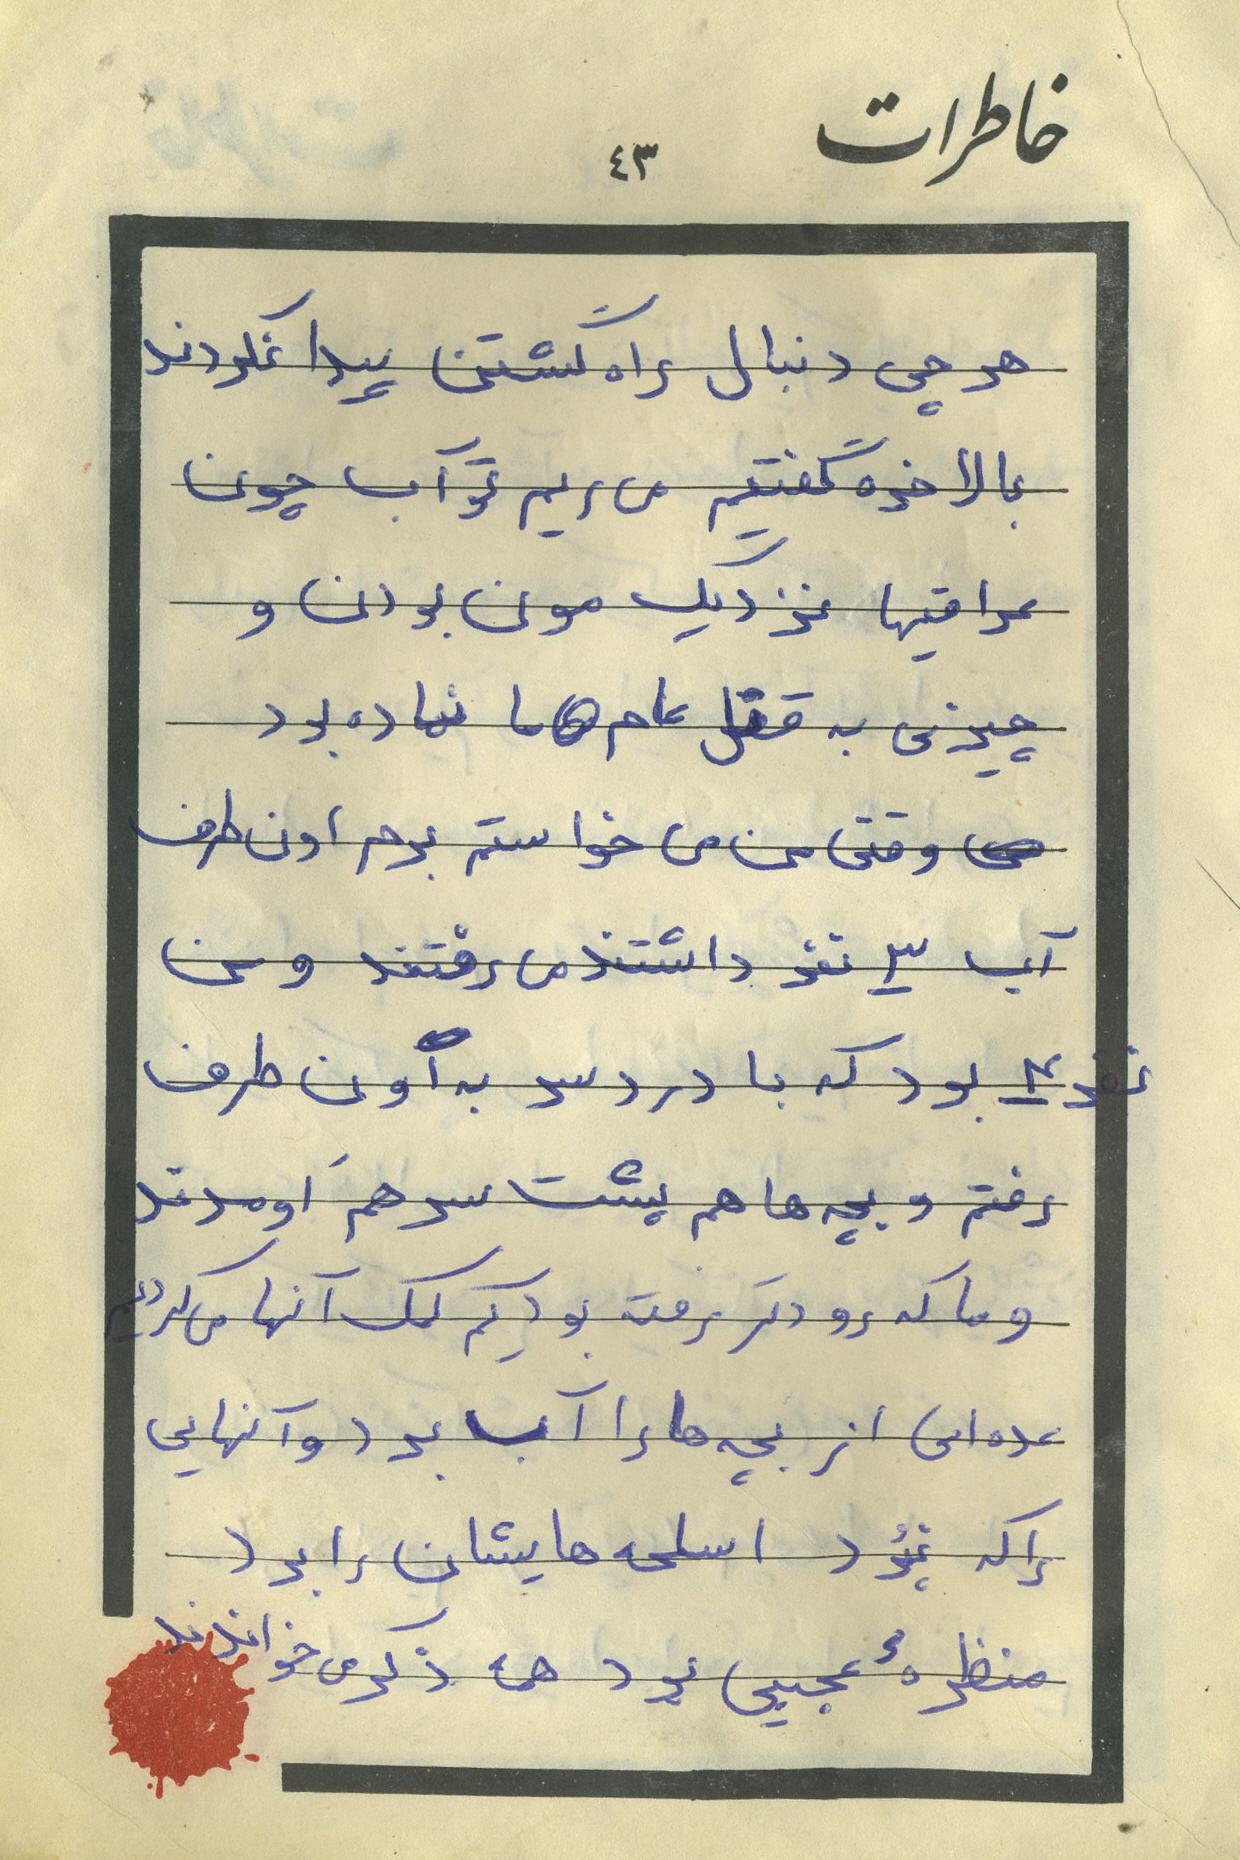 خاطرات
٤٣
هر چی دنبال راه گشتن پیدا نکردند
بالاخره گفتیم می ریم تو آب چون
عراقیها نزدیک مون بودن و
چیزی به قتل عام ما نمانده بود
وقتی من می خواستم برم اون طرف
آب ۳ نفر داشتند می رفتند و من
نفر ۴ بودم که با دردسر به اون طرف
رفتم و بچه ها هم پشت سر هم اومدند
و ما که زودتر رفته بودیم کمک آنها می کردیم
عده ای از بچه ها را آب برد و آنهایی
را که نبرد اسلحه هایشان را برد
منظره عجیبی بود همه ذکر می خواندند